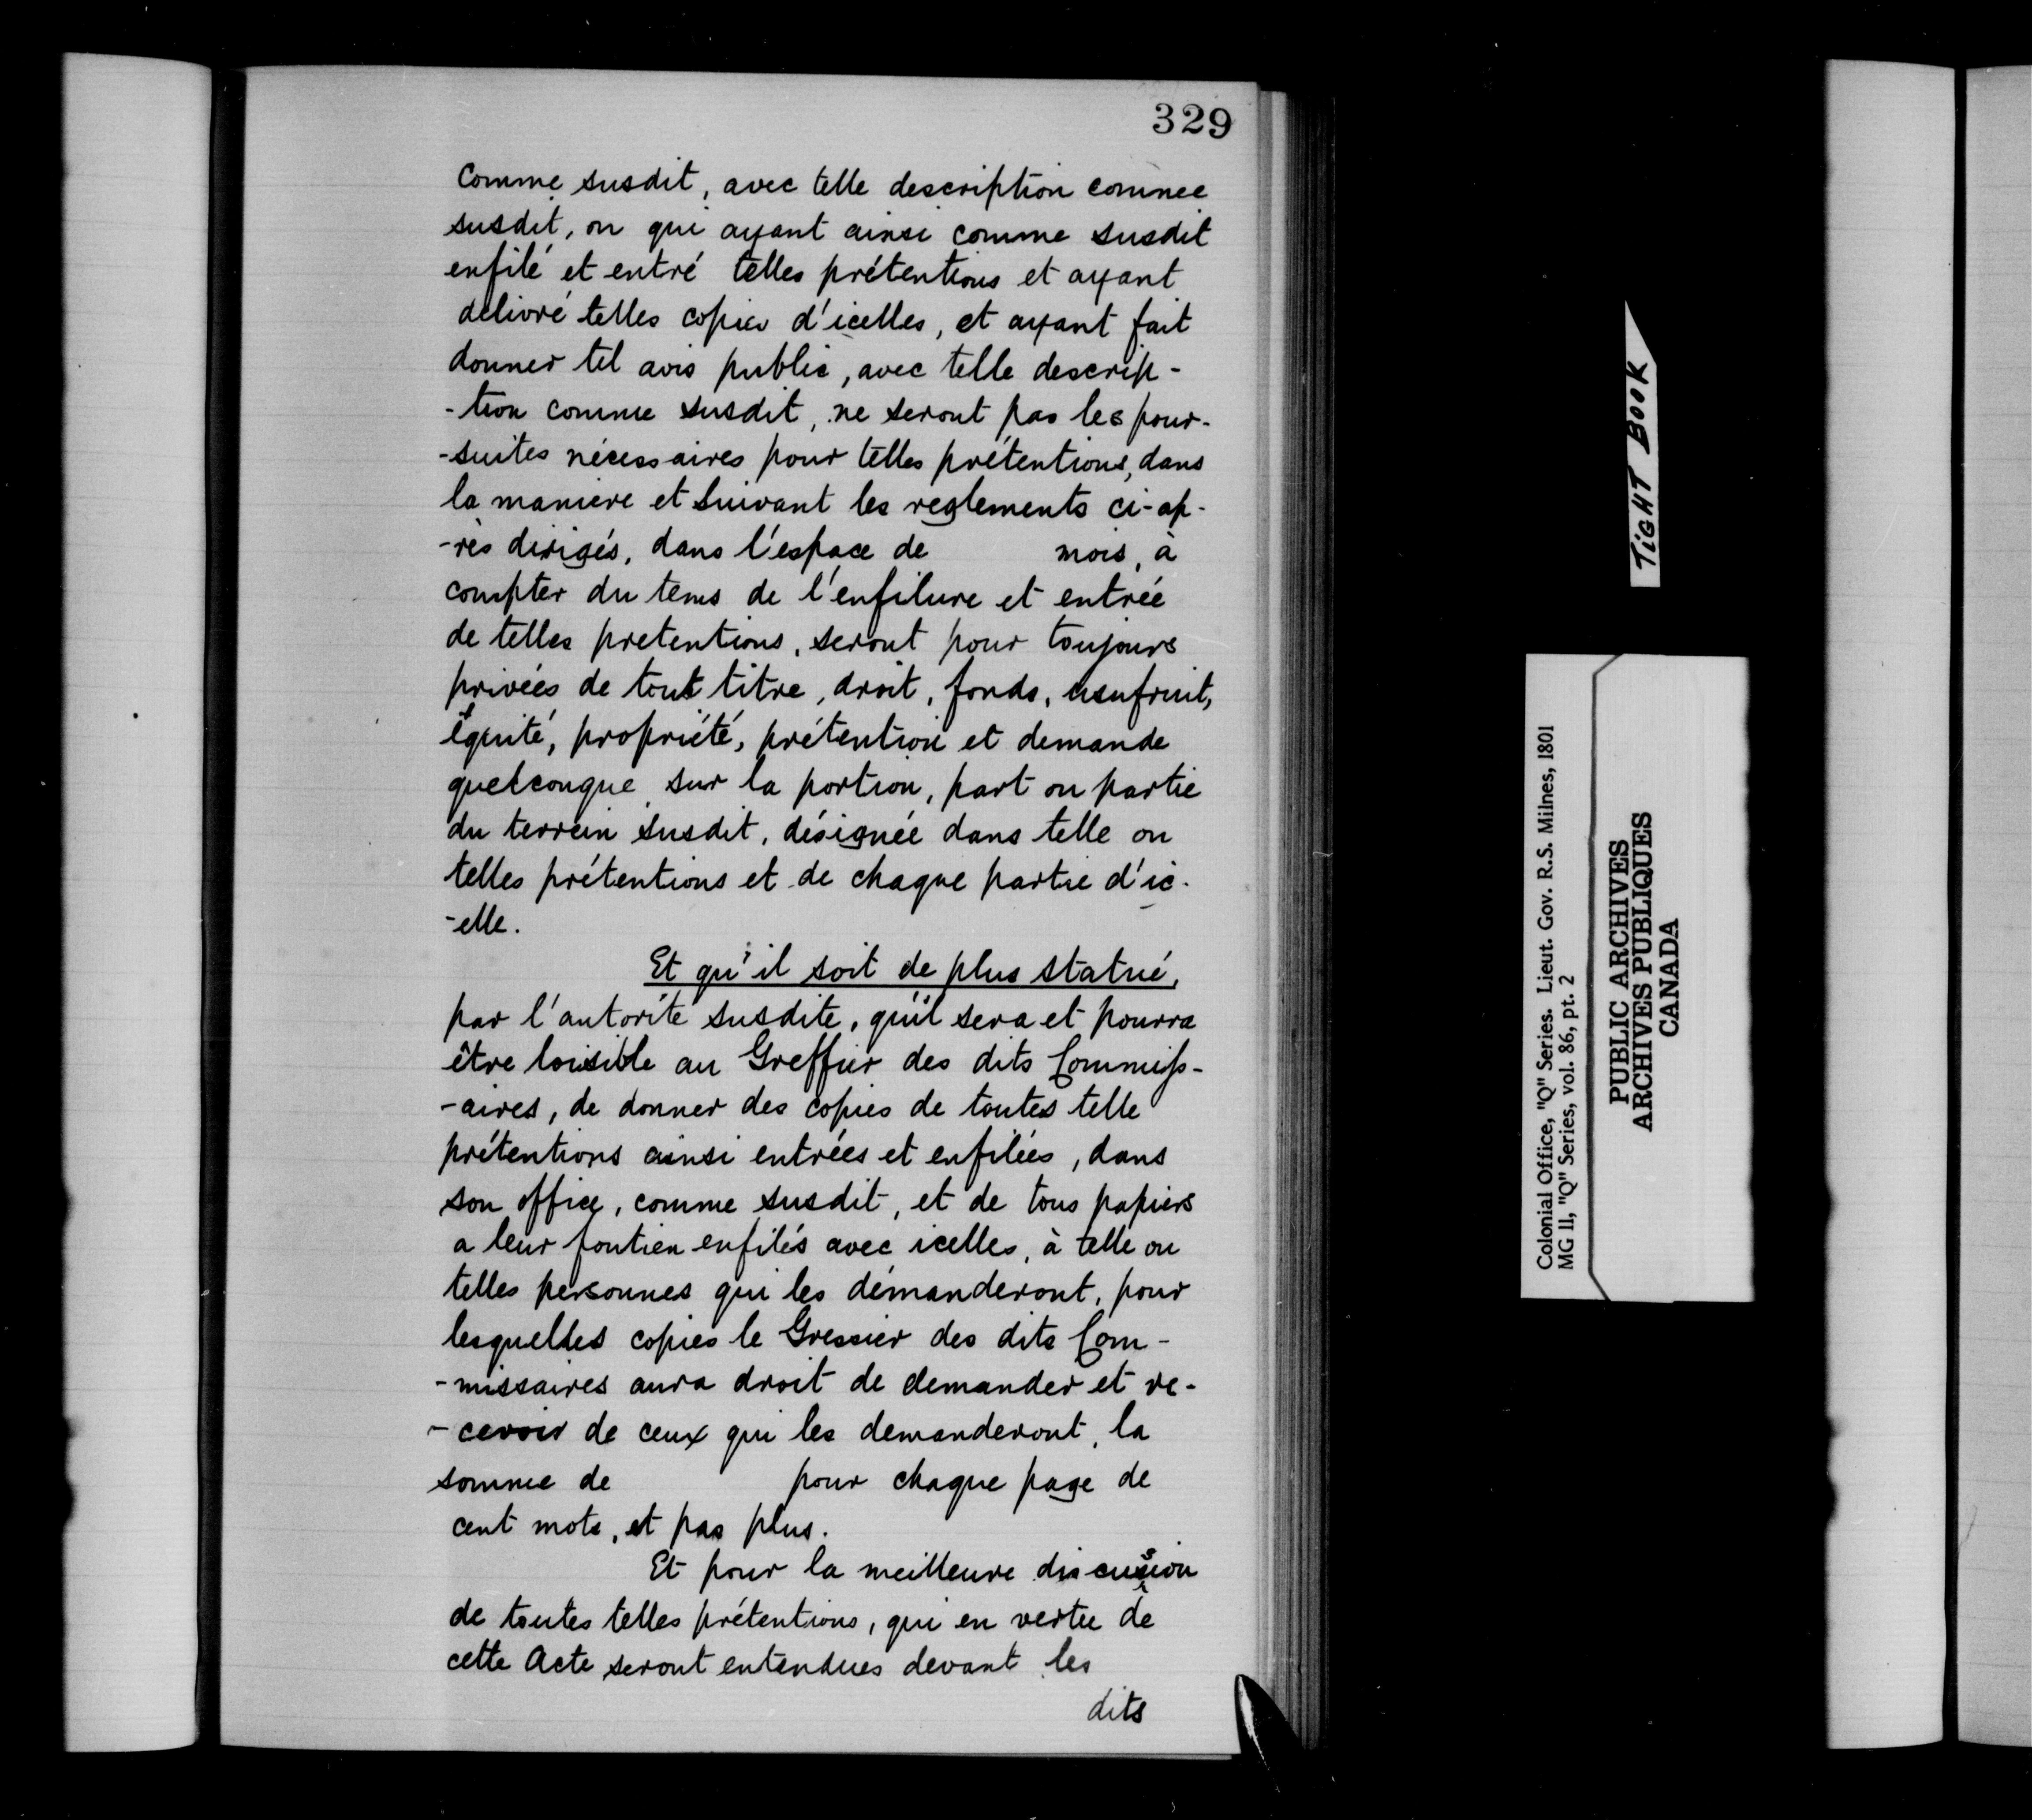 329
comme susdit, avec telle description comme
susdit, ou qui ayant ainsi comme susdit
enfilé et entré telles prétentions et ayant
délivré telles copies d'icelles, et ayant fait
donner tel avis public, avec telle descrip-
-tion comme susdit, ne seront pas les pour-
-suites nécessaires pour telles prétentions, dans
la maniere et suivant les reglements ci-ap-
-rès dirigés, dans l'espace de mois, à
compter du tems de l'enfilure et entrée
de telles pretentions, seront pour toujours
privées de tout titre, droit, fonds, usufruit,
équité, propriété, prétention et demande
quelconque sur la portion, part ou partie
du terrein susdit, désignée dans telle ou
telles prétentions et de chaque partie d'ic-
-elle.
Et qu'il soit de plus statué,
par l'autorité susdite, qu'il sera et pourra
être loisible au Greffier des dits Commiss-
-aires, de donner des copies de toutes telle
prétentions ainsi entrées et enfilées, dans
son office, comme susdit, et de tous papiers
a leur soutien enfilés avec icelles, à telle ou
telles personnes qui les demanderont, pour
lesquelles copies le Gressier des dits Com-
-missaires aura droit de demander et re-
-cevoir de ceux qui les demanderont, la
somme de pour chaque page de
cent mots, et pas plus.
Et pour la meilleure discussion
de toutes telles prétentions, qui en vertu de
cette Acte seront entendues devant les
dits
TIGHT BOOK
Colonial Office, "Q" Series. Lieut. Gov. R.S. Milnes, 1801
MG 11, "Q" Series, vol. 86, pt. 2
PUBLIC ARCHIVES
ARCHIVES PUBLIQUES
CANADA